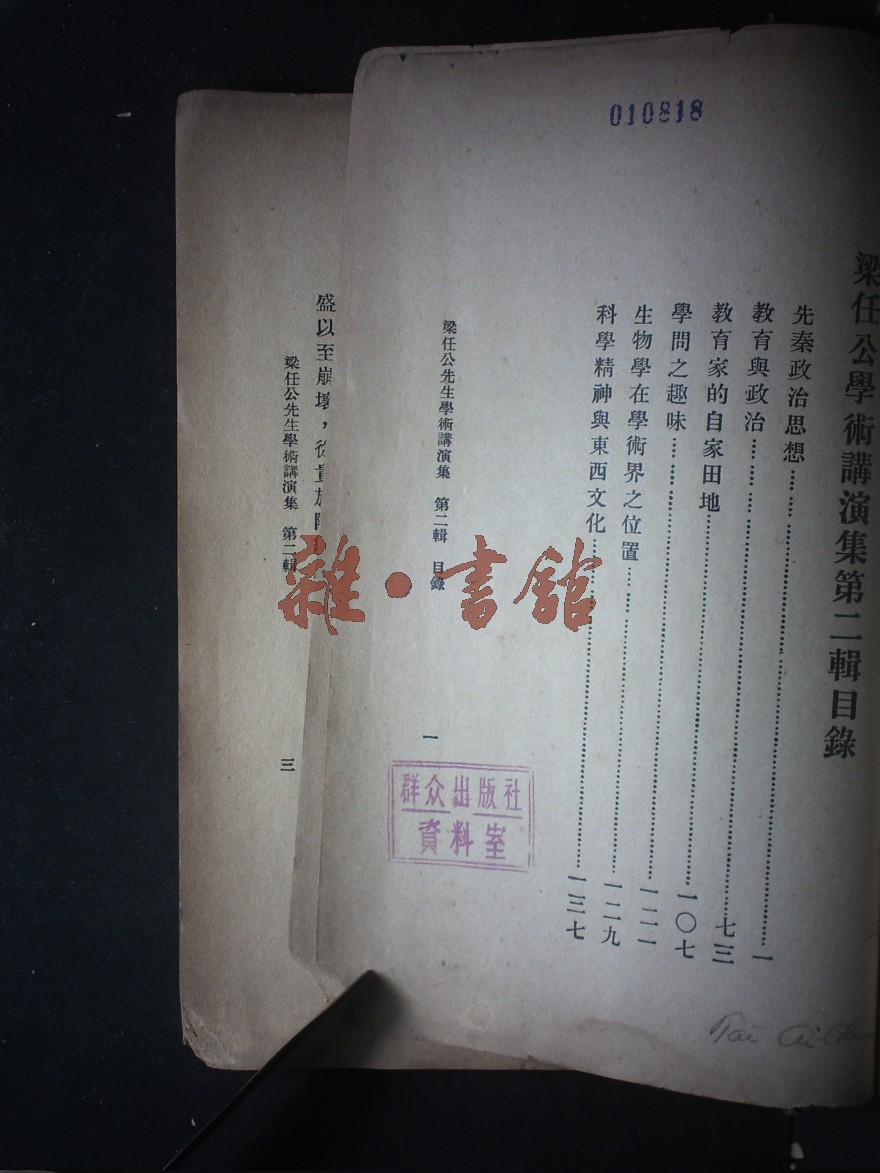 010818
梁任公學術講演集第二輯目錄
先秦政治思想……一
教育與政治……七三
教育家的自家田地……一〇七
學問之趣味……一二一
生物學在學術界之位置……一二九
科學精神與東西文化……一三七
梁任公先生學術講演集 第二輯 目錄
一
群众出版社
資料室
Tai
盛以至崩壞，從貴
梁任公先生學術講演集 第二輯
三
雜·書館